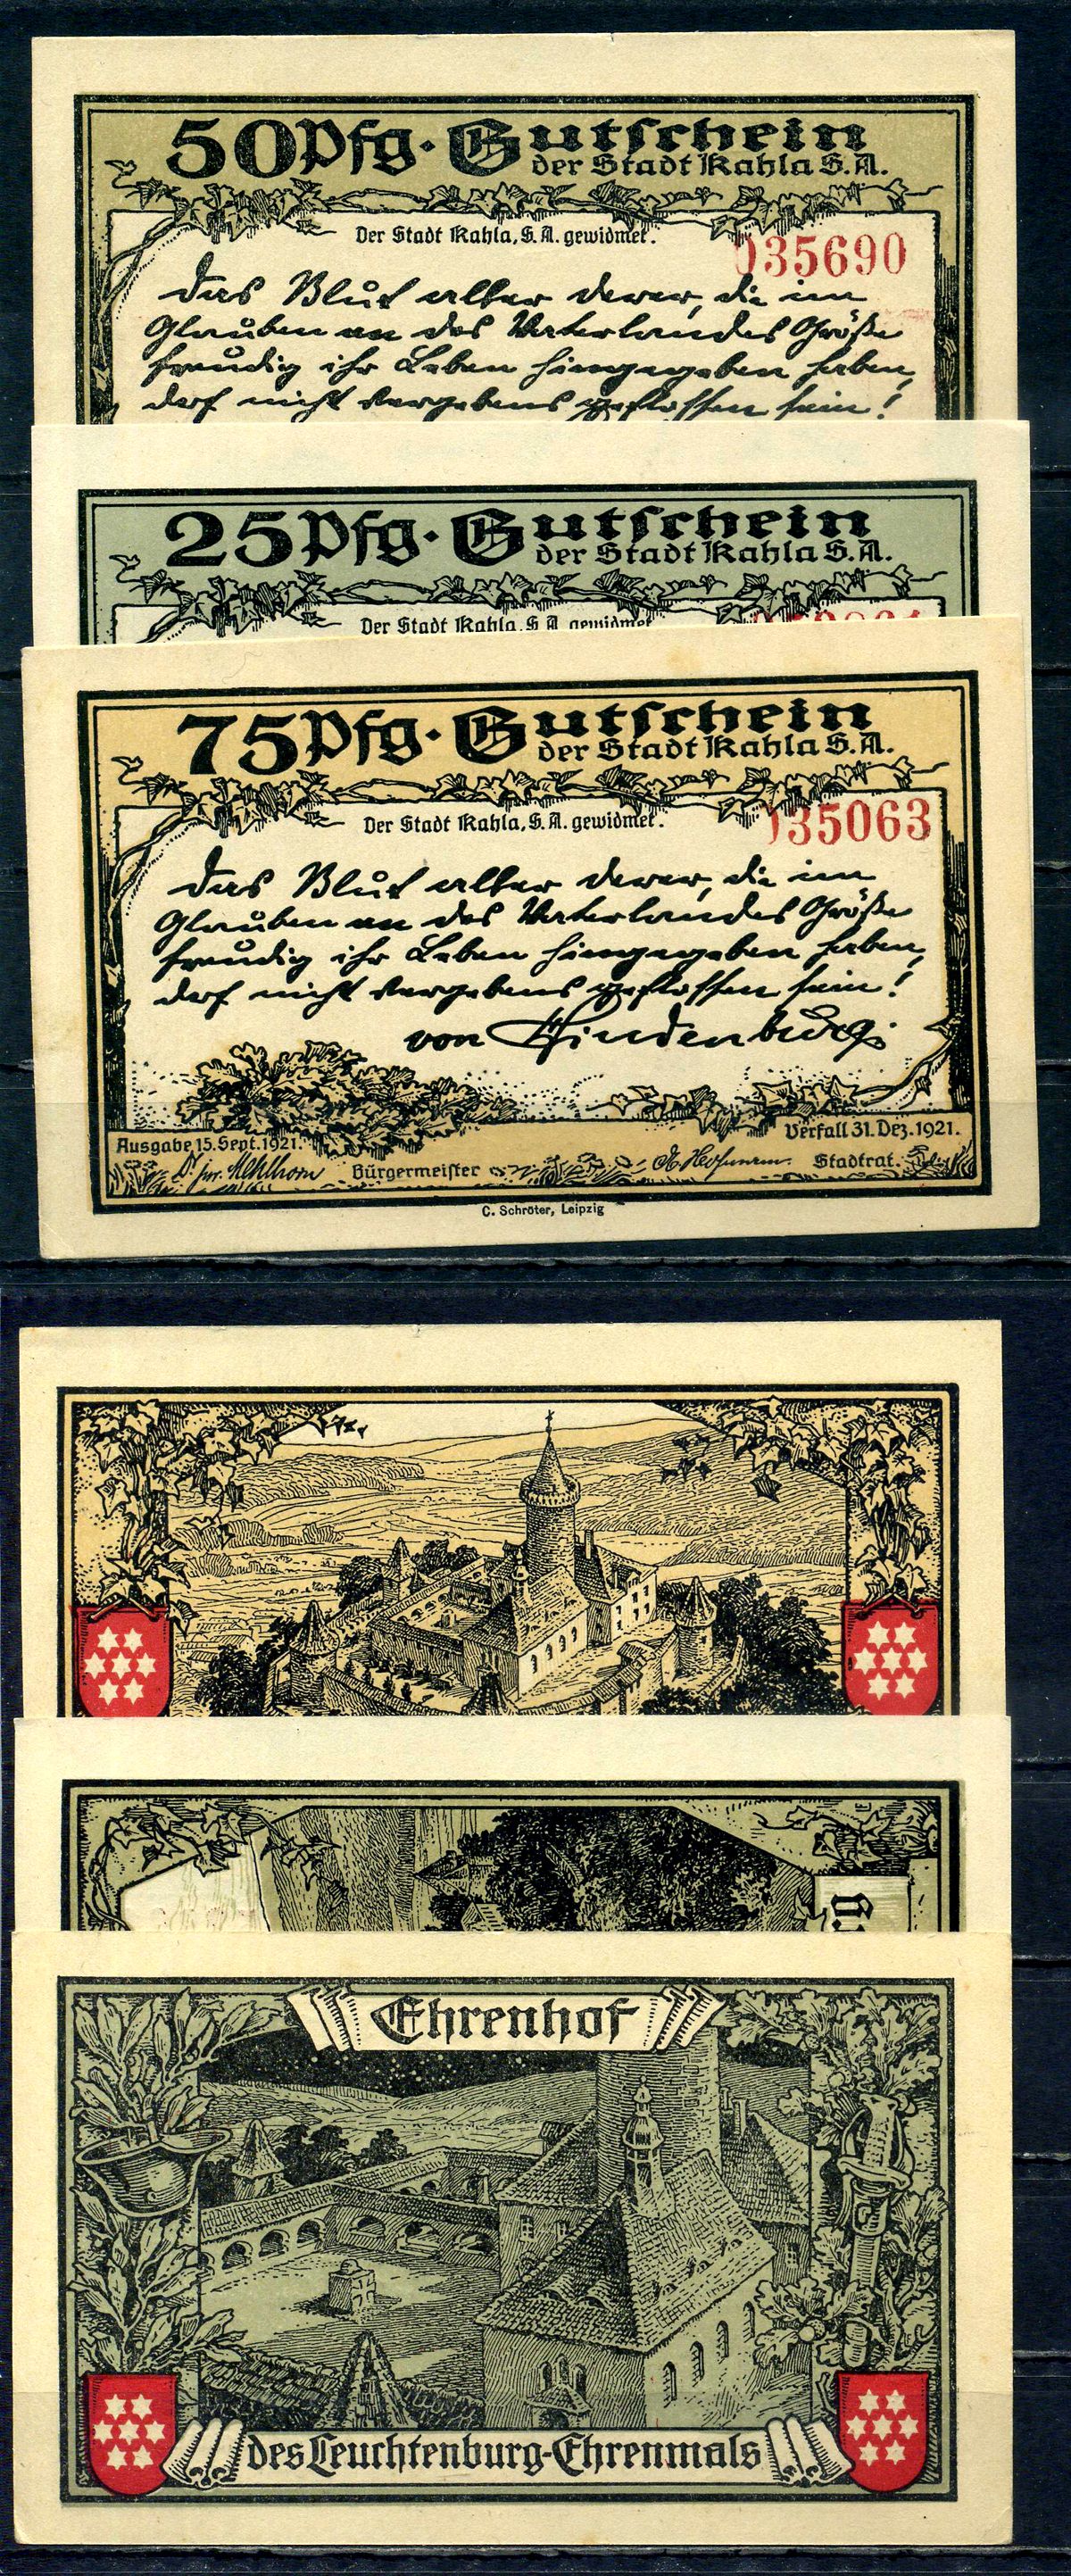 50 Pfg. Gutschein
der Stadt Kahla S.A.
Der Stadt Kahla, S.A. gewidmet.
035690
Das Blut aller derer, die im
Glauben an des Vaterlandes Größe
freudig ihr Leben hingegeben haben,
darf nicht vergebens geflossen sein!
25 Pfg. Gutschein
der Stadt Kahla S.A.
Der Stadt Kahla, S.A. gewidmet.
75 Pfg. Gutschein
der Stadt Kahla S.A.
Der Stadt Kahla, S.A. gewidmet.
035063
Das Blut aller derer, die im
Glauben an des Vaterlandes Größe
freudig ihr Leben hingegeben haben,
darf nicht vergebens geflossen sein!
von Hindenburg.
Ausgabe 15. Sept. 1921. Verfall 31. Dez. 1921.
Dr. jur. Mehlhorn Bürgermeister Stadtrat.
C. Schröter, Leipzig
Ehrenhof
des Leuchtenburg-Ehrenmals